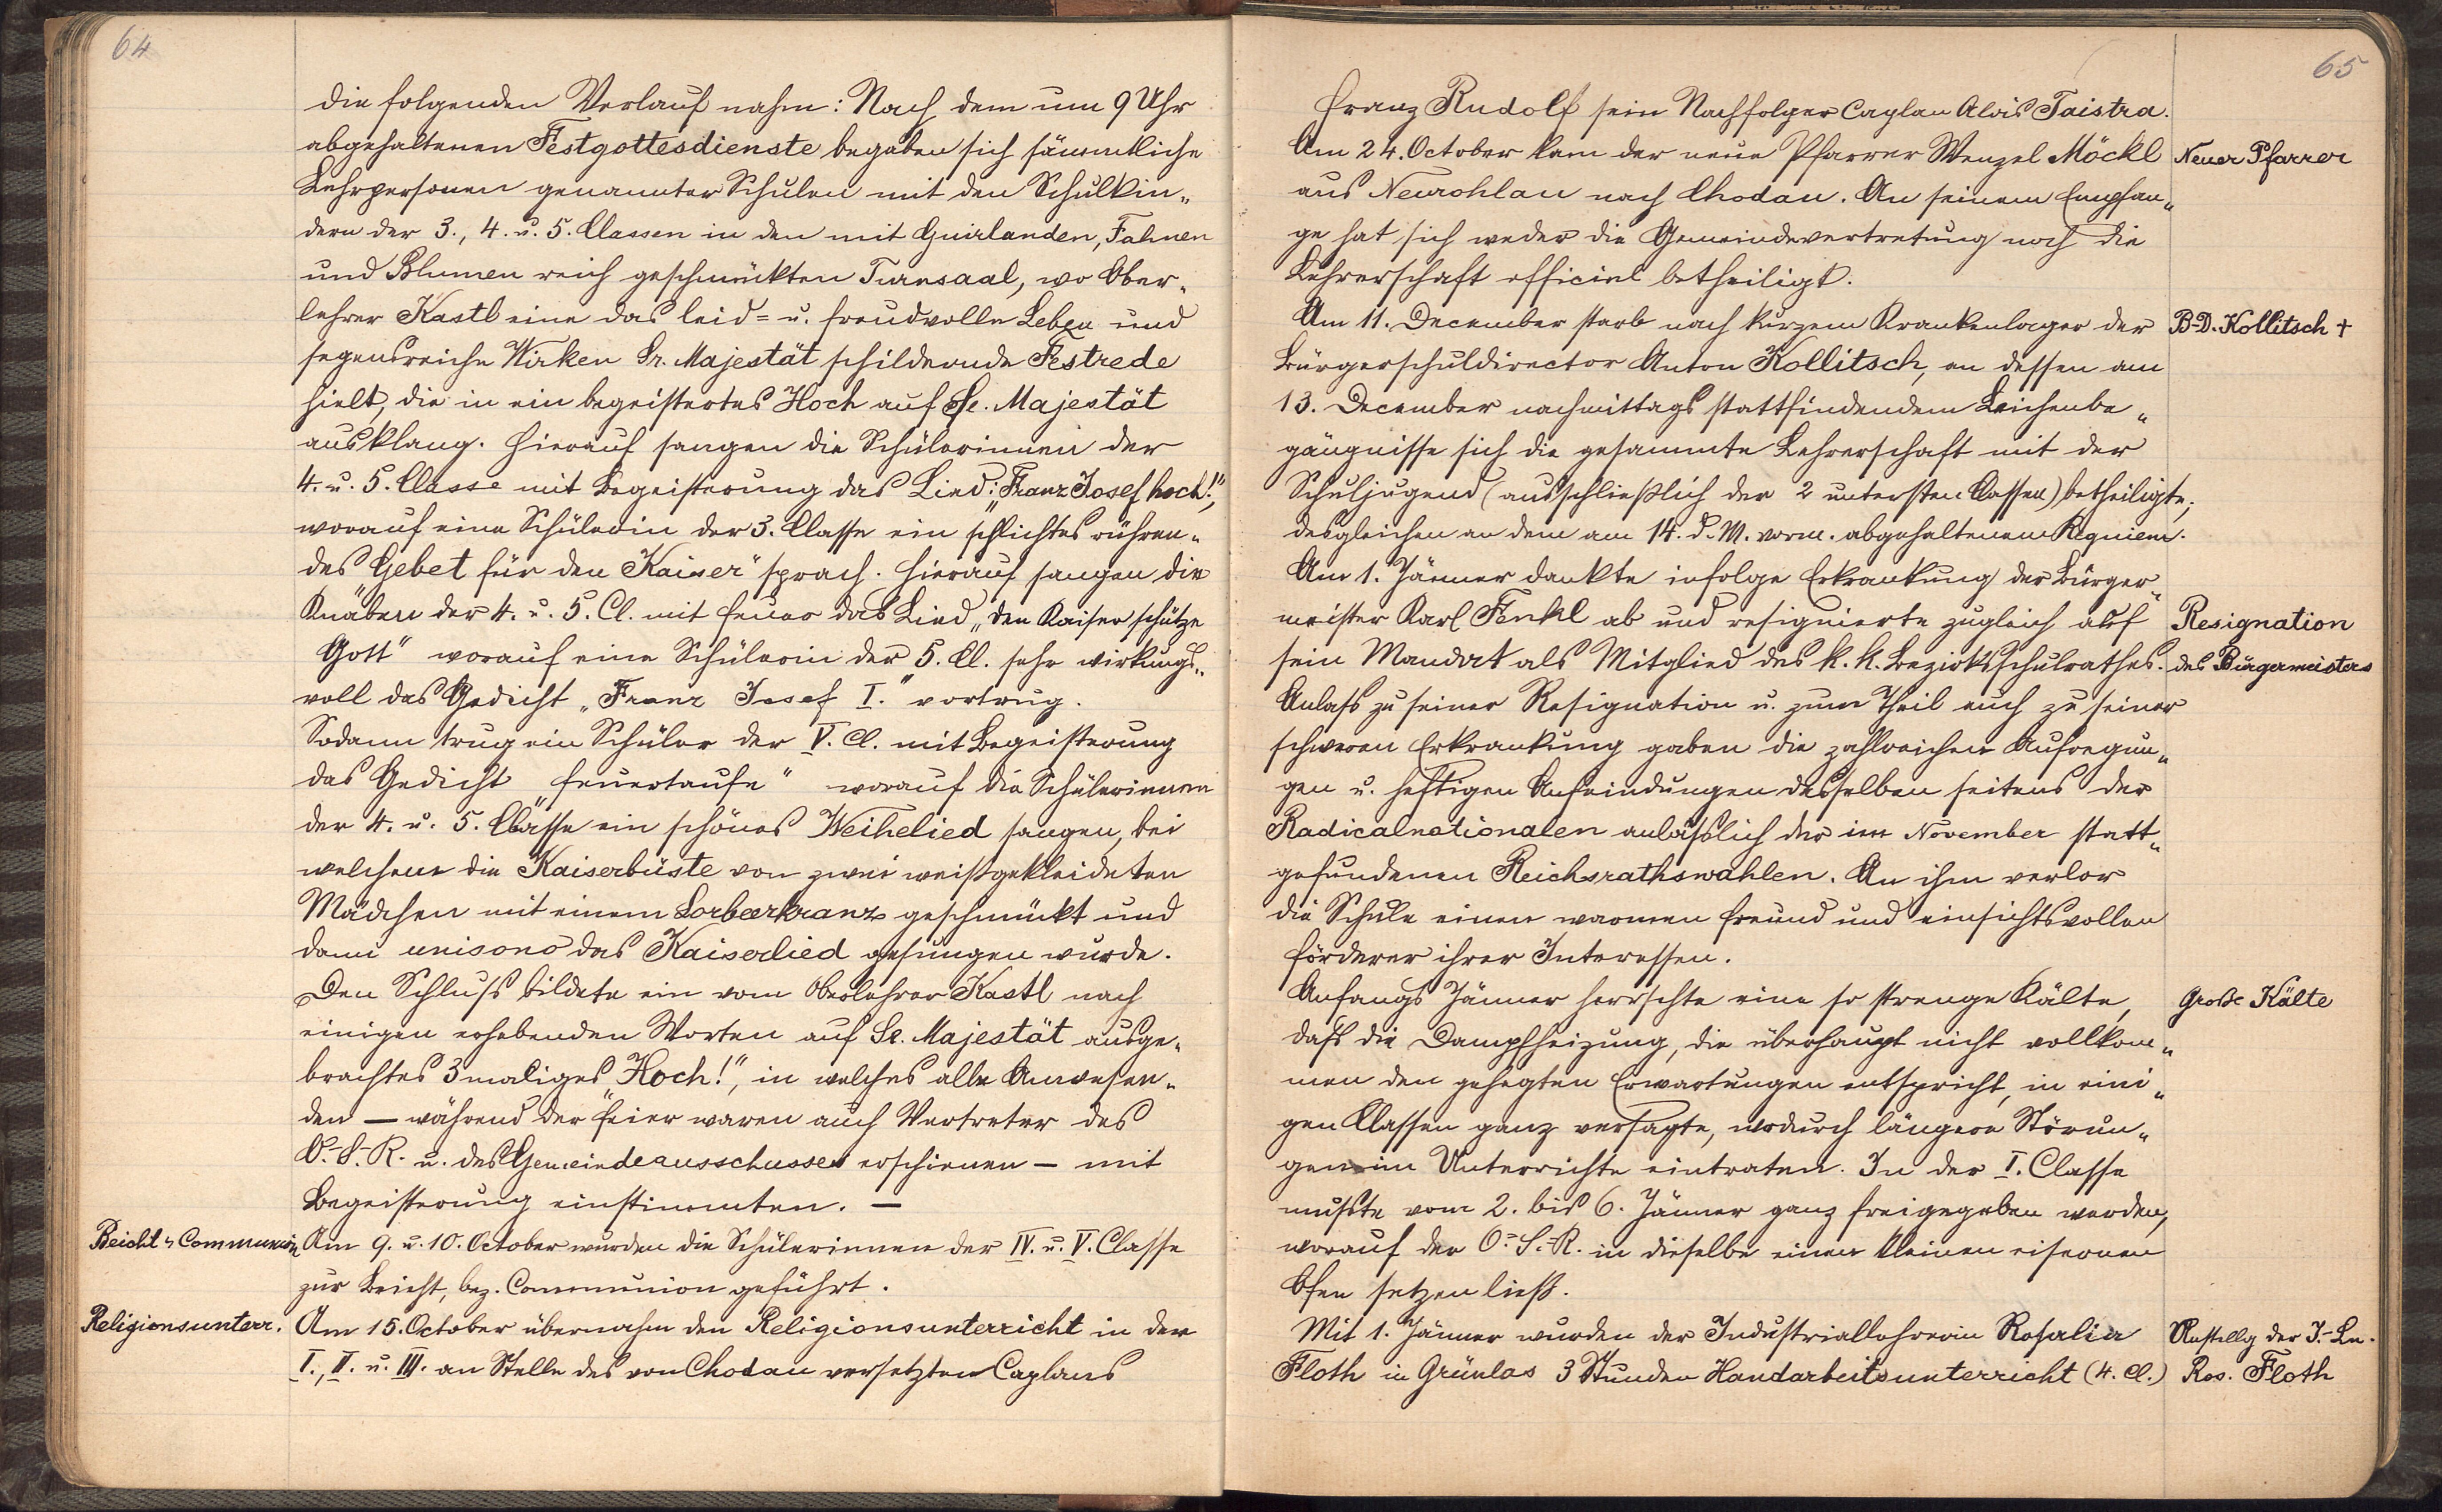 64
die folgenden Verlauf nahm: Nach dem um 9 Uhr
abgehaltenen Festgottesdienste begaben sich sämmtliche
Lehrpersonen genannter Schulen mit den Schulkin-
dern der 3., 4. u. 5. Classen in den mit Guirlanden, Fahnen
und Blumen reich geschmückten Turnsaal, wo Ober-
lehrer Kastl eine das leid- u. freudvolle Leben und
segensreiche Wirken Sr. Majestät schildernde Festrede
hielt, die in ein begeistertes Hoch auf Se. Majestät
ausklang. Hierauf sangen die Schülerinnen der
4. u. 5. Classe mit Begeisterung das Lied: "Franz Josef hoch!",
worauf eine Schülerin der 3. Classe ein schlichtes rühren-
des "Gebet für den Kaiser" sprach. Hierauf sangen die
Knaben der 4. u. 5. Cl. mit Feuer das Lied "Den Kaiser schütze
Gott" worauf eine Schülerin der 5. Cl. sehr wirkungs-
voll das Gedicht "Franz Josef I." vortrug.
Sodann trug ein Schüler der V. Cl. mit Begeisterung
das Gedicht "Feuertaufe" worauf die Schülerinnen
der 4. u. 5. Classe ein schönes Weihelied sangen, bei
welchem die Kaiserbüste von zwei weißgekleideten
Mädchen mit einem Lorbeerkranz geschmückt und
dann unisono das Kaiserlied gesungen wurde.
Den Schluß bildete ein vom Oberlehrer Kastl nach
einigen erhebenden Worten auf Se. Majestät ausge-
brachtes 3maliges "Hoch!", in welches alle Anwesen-
den — während der Feier waren auch Vertreter des
O.-S.-R. u. des Gemeindeausschusses erschienen — mit
Begeisterung einstimmten. —
Beicht u Communion
Am 9. u. 10. October wurden die Schülerinnen der IV. u. V. Classe
zur Beicht, bez. Communion geführt.
Religionsunterr.
Am 15. October übernahm den Religionsunterricht in der
I., II. u. III. an Stelle des von Chodau versetzten Caplans
65
Franz Rudolf sein Nachfolger Caplan Alois Taistra.
Am 24. October kam der neue Pfarrer Wenzel Möckl
Neuer Pfarrer
aus Neurohlau nach Chodau. An seinem Empfan-
ge hat sich weder die Gemeindevertretung noch die
Lehrerschaft officiel betheiligt.
Am 11. December starb nach kurzem Krankenlager der
B-D. Kollitsch †
Bürgerschuldirector Anton Kollitsch, an dessen am
13. December nachmittags stattfindendem Leichenbe-
gängnisse sich die gesammte Lehrerschaft mit der
Schuljugend (ausschließlich der 2 untersten Classen) betheiligte;
desgleichen an dem am 14. d. M. vorm. abgehaltenem Requiem.
Am 1. Jänner dankte infolge Erkrankung der Bürger-
meister Karl Fenkl ab und resignierte zugleich auf
Resignation
sein Mandat als Mitglied des k. k. Bezirksschulrathes.
des Bürgermeisters
Anlaß zu seiner Resignation u. zum Theil auch zu seiner
schweren Erkrankung gaben die zahlreichen Aufregun-
gen u. heftigen Anfeindungen desselben seitens der
Radicalnationalen anläßlich der im November statt-
gefundenen Reichsrathswahlen. An ihm verlor
die Schule einen warmen Freund und einsichtsvollen
Förderer ihrer Interessen.
Anfangs Jänner herrschte eine so strenge Kälte,
Große Kälte
daß die Dampfheizung, die überhaupt nicht vollkom-
men den gehegten Erwartungen entspricht, in eini-
gen Classen ganz versagte, wodurch längere Störun-
gen im Unterrichte eintraten. In der I. Classe
mußte vom 2. bis 6. Jänner ganz freigegeben werden,
worauf der O.-S.-R. in dieselbe einen kleinen eisernen
Ofen setzen ließ.
Mit 1. Jänner wurden der Industriallehrerin Rosalia
Anstellg der I.-Ln.
Floth in Grünlas 3 Stunden Handarbeitsunterricht (4. Cl.)
Ros. Floth